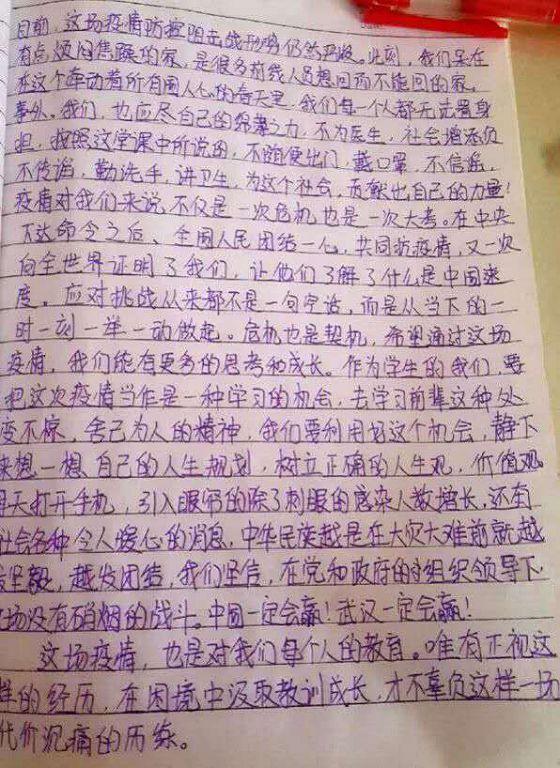 目前，这场疫情防控阻击战形势仍然严峻。此刻，我们呆在
有点烦闷焦躁的家，是很多前线人员想回而不能回的家。
在这个牵动着所有国人心的春天里，我们每一个人都无法置身
事外。我们，也应尽自己的绵薄之力，不为医生，社会增添负
担，按照这堂课中所说的，不随便出门，戴口罩，不信谣，
不传谣，勤洗手，讲卫生，为这个社会，贡献出自己的力量！
疫情对我们来说不仅是一次危机也是一次大考。在中央
下达命令之后、全国人民团结一心，共同抗疫情，又一次
向全世界证明了我们，让他们了解了什么是中国速
度。应对挑战从来都不是一句空话，而是从当下的一
时一刻一举一动做起。危机也是契机，希望通过这场
疫情，我们能有更多的思考和成长。作为学生的我们，要
把这次疫情当作是一种学习的机会，去学习前辈这种处
变不惊，舍己为人的精神，我们要利用好这个机会，静下
来想一想自己的人生规划，树立正确的人生观，价值观
每天打开手机，引入眼帘的除了刺眼的感染人数增长，还有
社会各种令人暖心的消息，中华民族越是在大灾大难前就越
发坚毅，越发团结，我们坚信，在党和政府的组织领导下
这场没有硝烟的战斗。中国一定会赢！武汉一定会赢！
这场疫情，也是对我们每个人的教育。唯有正视这
样的经历，在困境中汲取教训成长，才不辜负这样一场
代价沉痛的历练。